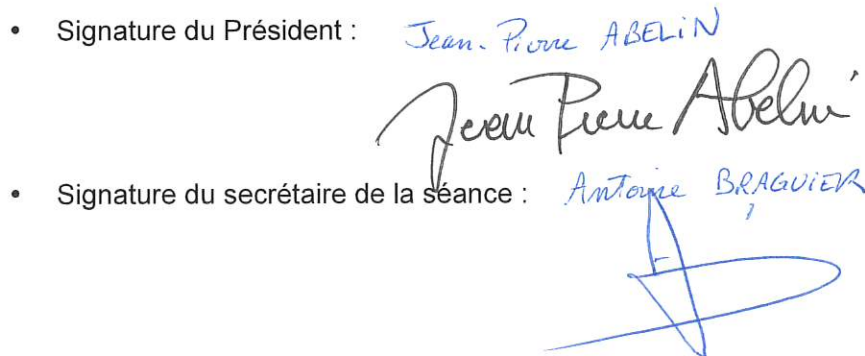 • Signature du Président : Jean-Pierre ABELiN
Jean Pierre Abelin
• Signature du secrétaire de la séance : Antoine BRAGUIER